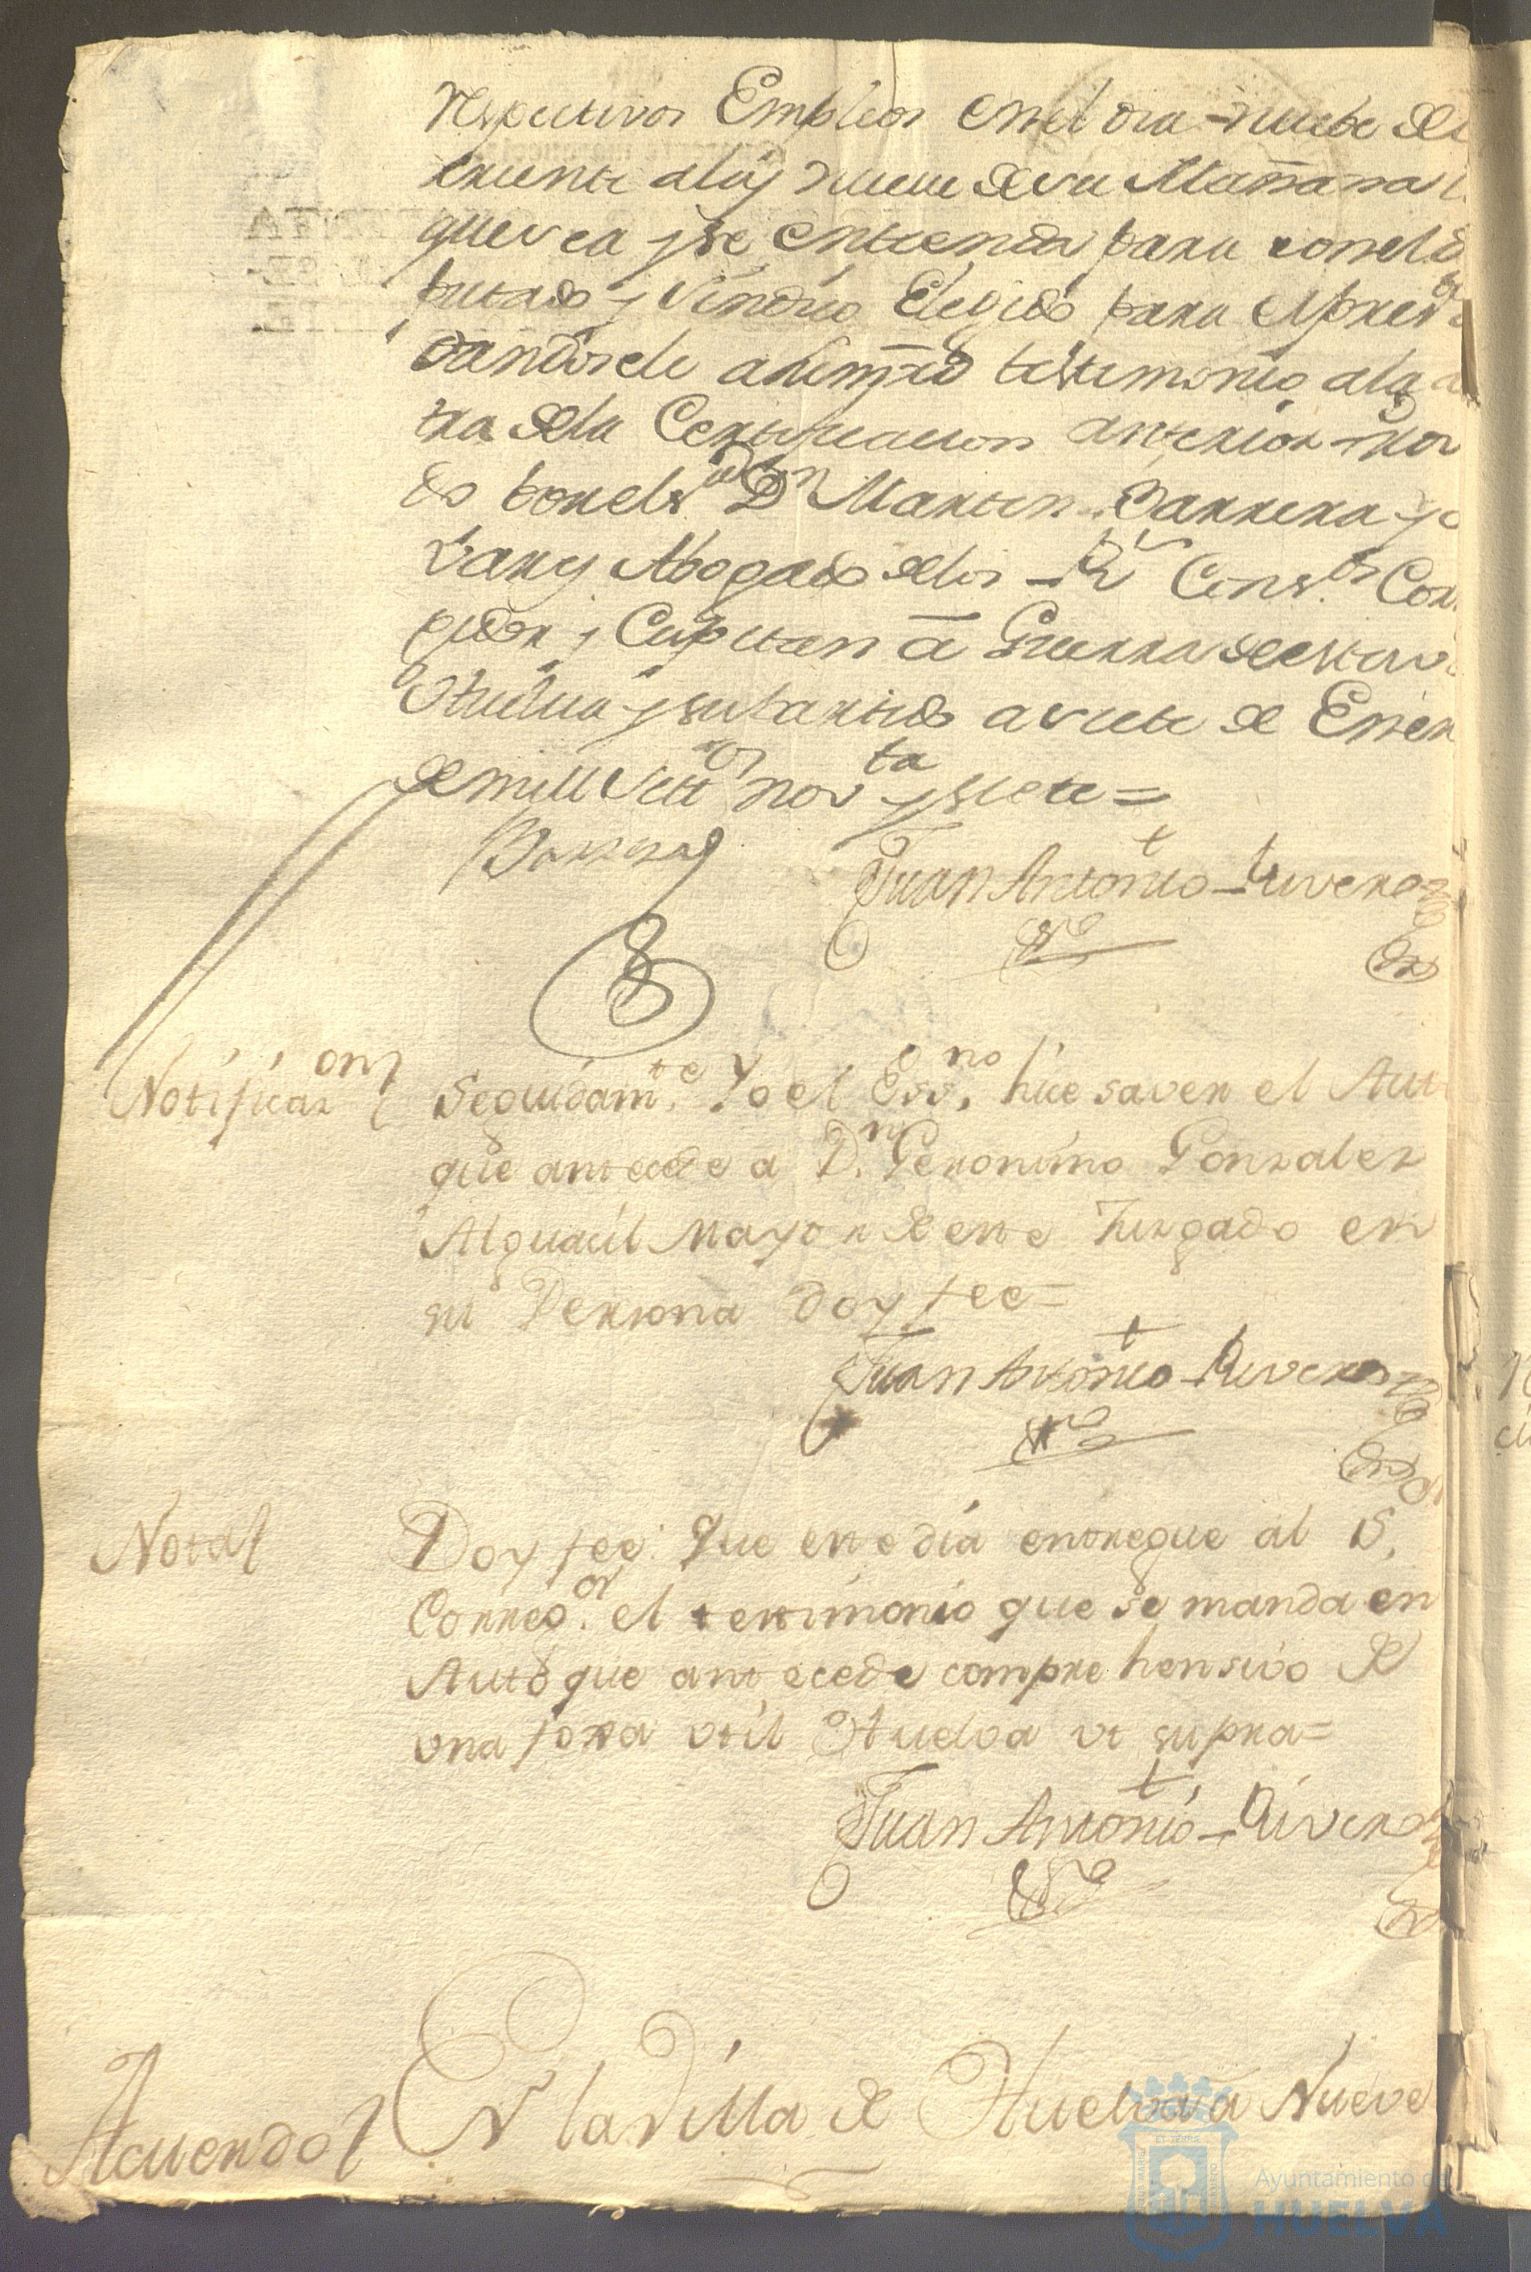 respectivos Empleos en el dia nuebe del
triente a las nueve de su Mañana
que sea y se entienda para con el d
putado y Sindico Elegido para el pres
dandosele a dim testimonio a la
tra de la Certificacion anterior
do por el Sr Dn Martin Barrera y
Vary Abogado de los Rs Consos Corr
gidor y Capitan â Guerra de esta v
Huelva y su Partido a siete de Ener
de mill Settos novta y siete =
Barrera
Juan Antonio Rivero
Notificazon
Seguidamte Yo el Essno hice saver el Aut
que antecede a Dn Geronimo Gonzalez
Alguacil Mayor de este Juzgado en
su Persona doy fee =
Juan Antonio Rivero
Nota
Doy fee que este dia entregue al S.
Corregor el testimonio que se manda en
Auto que antecede comprehensivo de
una foxa util Huelva ut supra =
Juan Antonio Rivero
Acuerdo
En la Villa de Huelva â Nueve
Ayuntamiento de
HUELVA